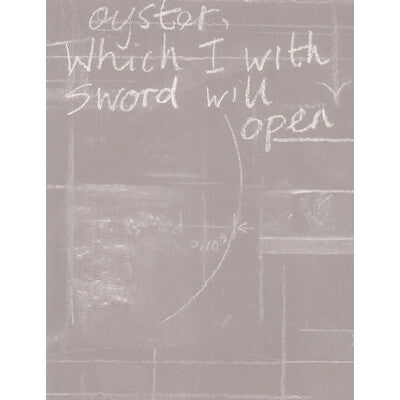 oyster,
Which I with
sword will
open